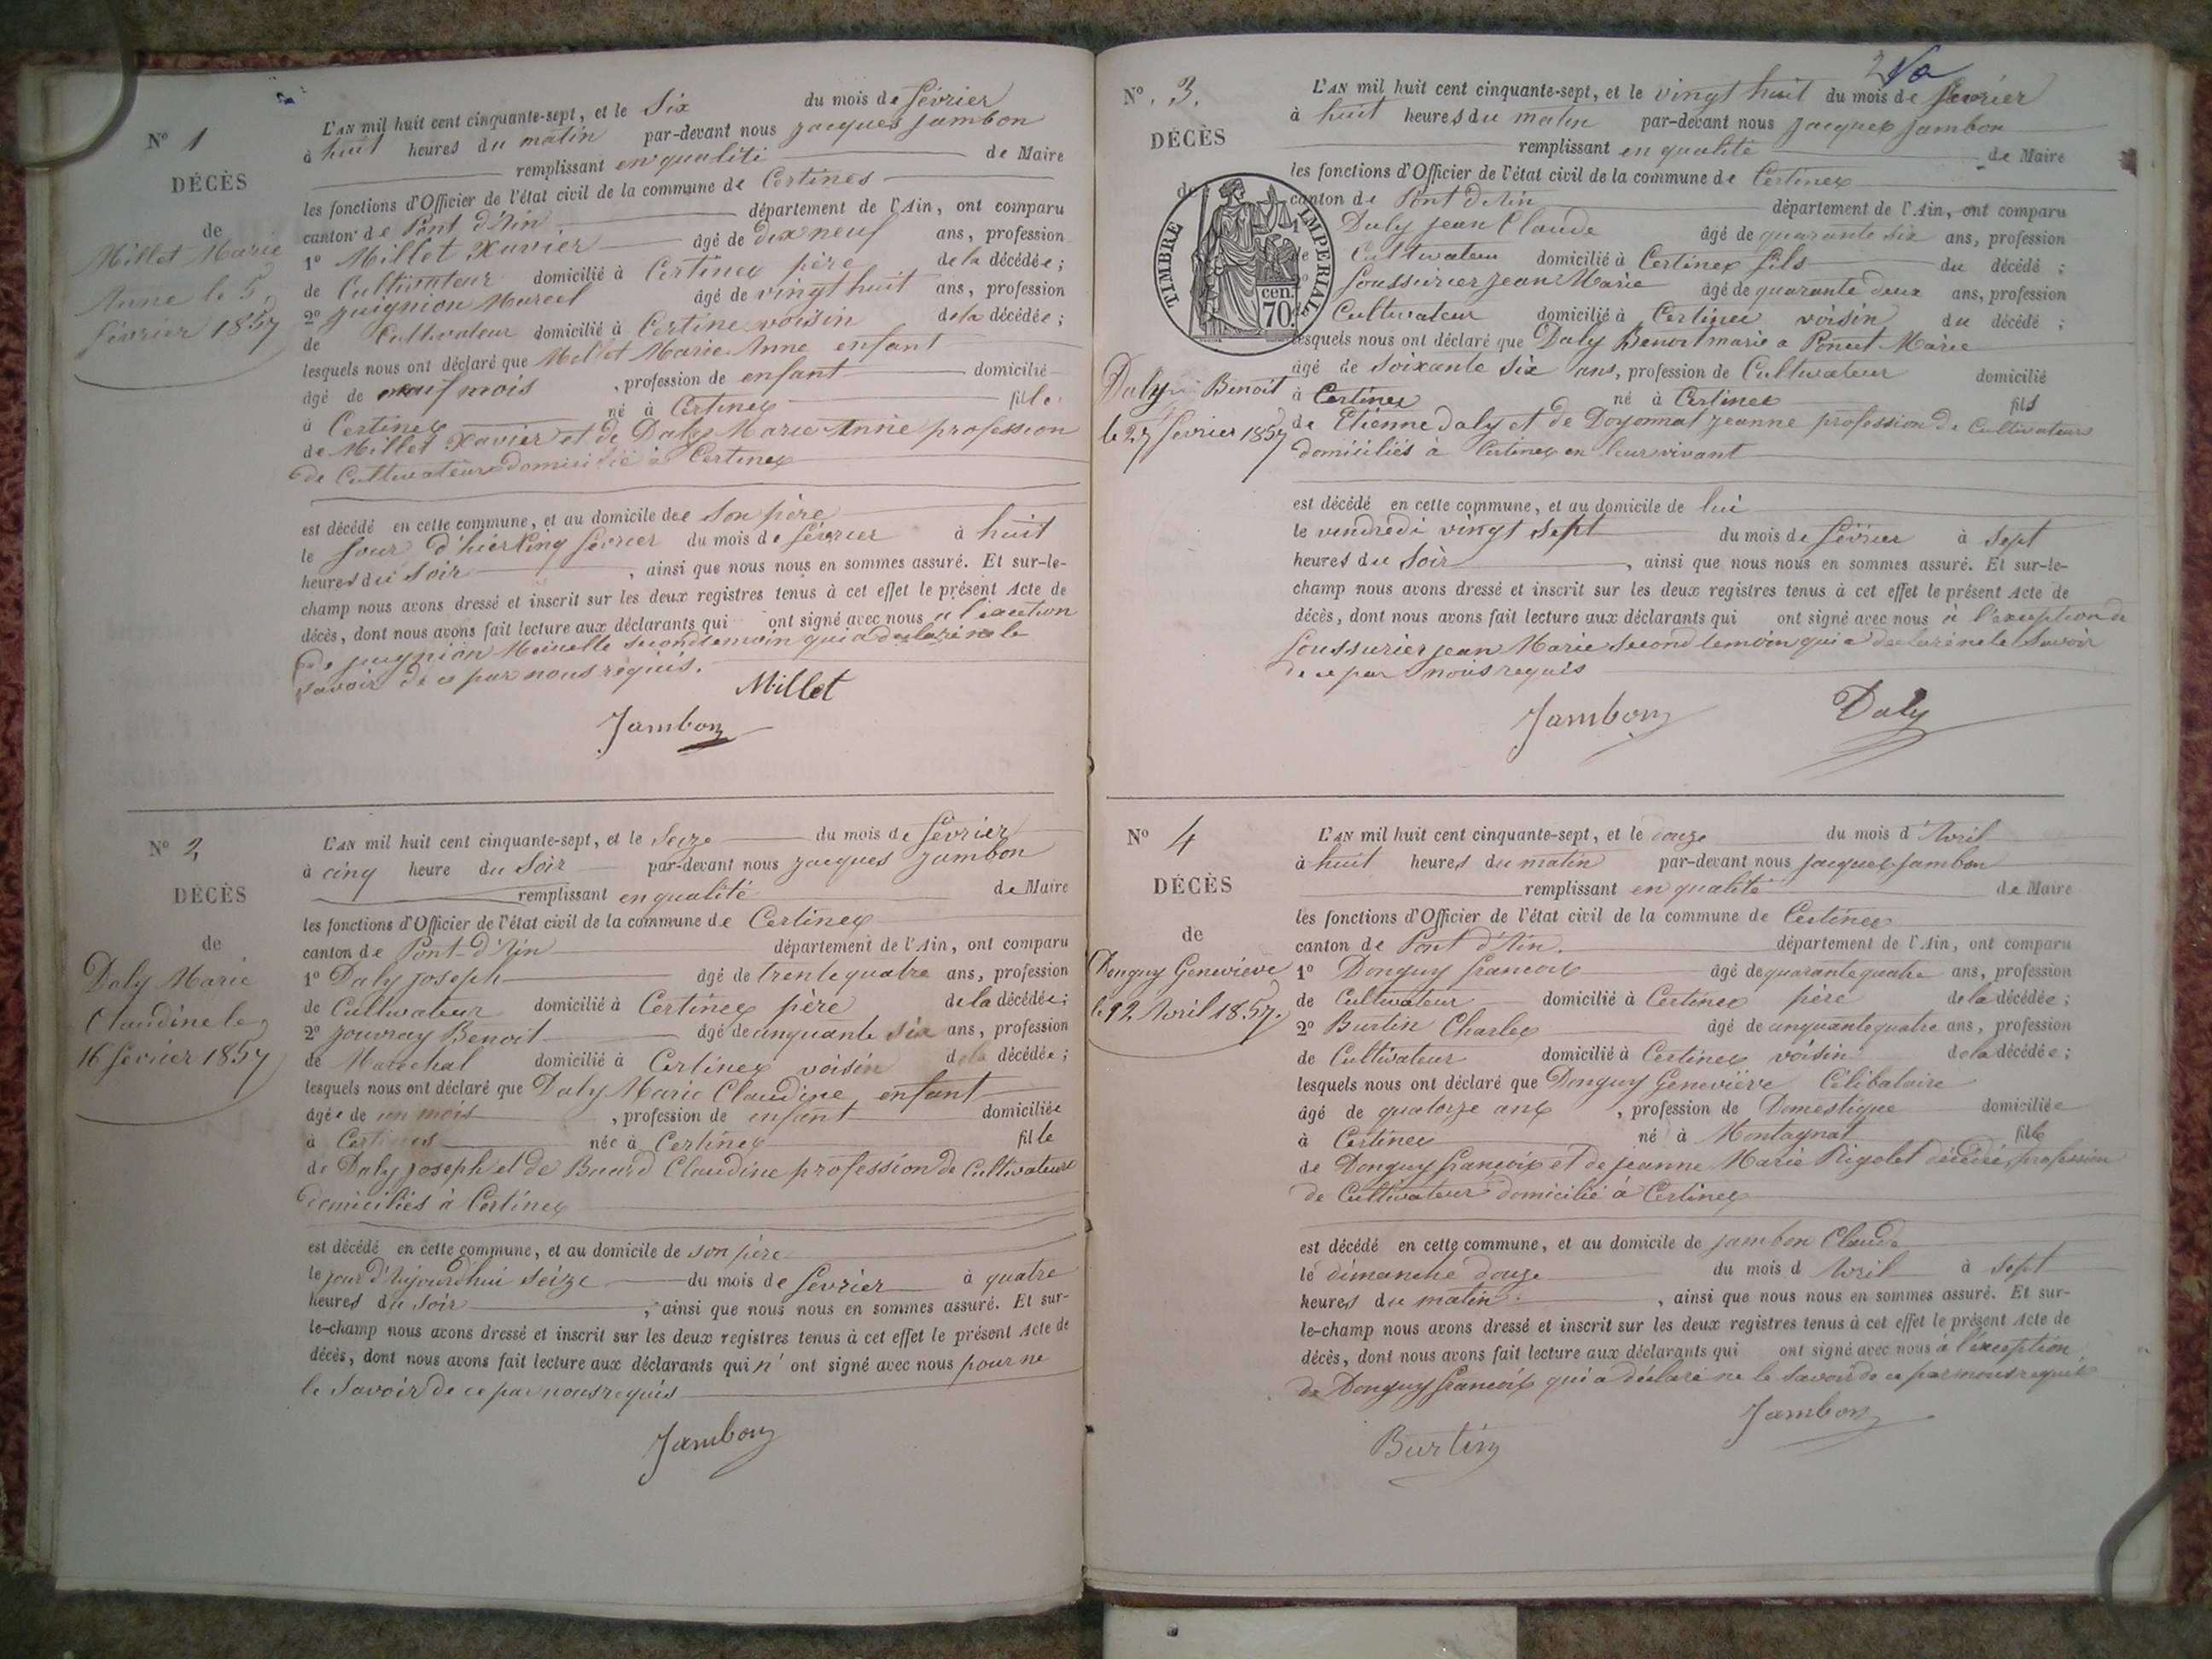 Nº 1
DÉCÈS
de
Millet Marie
Anne le 5
février 1857
L'AN mil huit cent cinquante-sept, et le Six du mois de février
à huit heures du matin par-devant nous jacques jambon
remplissant en qualité de Maire
les fonctions d'Officier de l'état civil de la commune de Certines
canton de Pont d'Ain département de l'Ain, ont comparu
1º Millet Xavier âgé de dix neuf ans, profession
de Cultivateur domicilié à Certines père de la décédée;
2º juignion Marcel âgé de vingt huit ans, profession
de Cultivateur domicilié à Certine voisin de la décédée;
lesquels nous ont déclaré que Millet Marie Anne enfant
âgé de neuf mois, profession de enfant domicilié
à Certines né à Certines fille
de Millet Xavier et de Daly Marie Anne profession
de Cultivateurs domicilié à Certines
est décédé en cette commune, et au domicile de son père
le jour d'hier cinq février du mois de février à huit
heures du soir, ainsi que nous nous en sommes assuré. Et sur-le-
champ nous avons dressé et inscrit sur les deux registres tenus à cet effet le présent Acte de
décès, dont nous avons fait lecture aux déclarants qui ont signé avec nous a l'exeution
de second temoin qui a declaré ne le
savoir de ce par nous requis.
Millet
Jambon
Nº 2
DÉCÈS
de
Daly Marie
Claudine le
16 fevrier 1857
L'AN mil huit cent cinquante-sept, et le Seize du mois de fevrier
à cinq heure du Soir par-devant nous jacques jambon
remplissant en qualité de Maire
les fonctions d'Officier de l'état civil de la commune de Certines
canton de Pont-d'Ain département de l'Ain, ont comparu
1º Daly joseph âgé de trente quatre ans, profession
de Cultivateur domicilié à Certines père de la décédée;
2º jouvray Benoit âgé de cinquante six ans, profession
de Marechal domicilié à Certines voisin de la décédée;
lesquels nous ont déclaré que Daly Marie Claudine enfant
âgée de un mois, profession de enfant domiciliée
à Certines née à Certines fille
de Daly joseph et de Claudine profession de Cultivateurs
domiciliés à Certines
est décédé en cette commune, et au domicile de son père
le jour d'Aujourd'hui seize du mois de fevrier à quatre
heures du soir, ainsi que nous nous en sommes assuré. Et sur-
le-champ nous avons dressé et inscrit sur les deux registres tenus à cet effet le présent Acte de
décès, dont nous avons fait lecture aux déclarants qui n'ont signé avec nous pour ne
le Savoir de ce par nous requis
Jambon
Nº 3.
DÉCÈS
de
TIMBRE IMPERIAL
cen. 70
Daly Benoit
le 27 fevrier 1857
L'AN mil huit cent cinquante-sept, et le vingt huit du mois de fevrier
à huit heures du matin par-devant nous jacques jambon
remplissant en qualité de Maire
les fonctions d'Officier de l'état civil de la commune de Certines
canton de Pont d'Ain département de l'Ain, ont comparu
1º Daly jean Claude âgé de quarante six ans, profession
de Cultivateur domicilié à Certines fils du décédé;
2º Soussurier jean Marie âgé de quarante deux ans, profession
de Cultivateur domicilié à Certines voisin du décédé;
lesquels nous ont déclaré que Daly Benoit marie a Poncet Marie
âgé de soixante six ans, profession de Cultivateur domicilié
à Certines né à Certines fils
de Etienne daly et de Doyonnat jeanne profession de Cultivateurs
domiciliés à Certines en leur vivant
est décédé en cette commune, et au domicile de lui
le vendredi vingt sept du mois de février à sept
heures du Soir, ainsi que nous nous en sommes assuré. Et sur-le-
champ nous avons dressé et inscrit sur les deux registres tenus à cet effet le présent Acte de
décès, dont nous avons fait lecture aux déclarants qui ont signé avec nous à l'exception de
Soussurier jean Marie second temoin qui a declaré ne le Savoir
de ce par nous requis
Jambon Daly
Nº 4
DÉCÈS
de
Donguy Genevieve
le 12 Avril 1857.
L'AN mil huit cent cinquante-sept, et le douze du mois d'Avril
à huit heures du matin par-devant nous jacques jambon
remplissant en qualité de Maire
les fonctions d'Officier de l'état civil de la commune de Certines
canton de Pont d'Ain. département de l'Ain, ont comparu
1º Donguy francois âgé de quarante quatre ans, profession
de Cultivateur domicilié à Certines père de la décédée;
2º Burtin Charles âgé de cinquante quatre ans, profession
de Cultivateur domicilié à Certines voisin de la décédée;
lesquels nous ont déclaré que Donguy Geneviève Célibataire
âgé de quatorze ans, profession de Domestique domiciliée
à Certines né à Montagnat fille
de Donguy françois et de jeanne Marie Rigolet décédée, profession
de Cultivateur domicilié à Certines
est décédé en cette commune, et au domicile de jambon Claude
le dimanche douze du mois d Avril à sept
heures du matin, ainsi que nous nous en sommes assuré. Et sur-
le-champ nous avons dressé et inscrit sur les deux registres tenus à cet effet le présent Acte de
décès, dont nous avons fait lecture aux déclarants qui ont signé avec nous à l'exception
de Donguy francois qui a déclaré ne le savoir de ce par nous requis
Jambon
Burtin